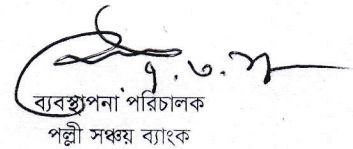 ব্যবস্থাপনা পরিচালক
পল্লী সঞ্চয় ব্যাংক